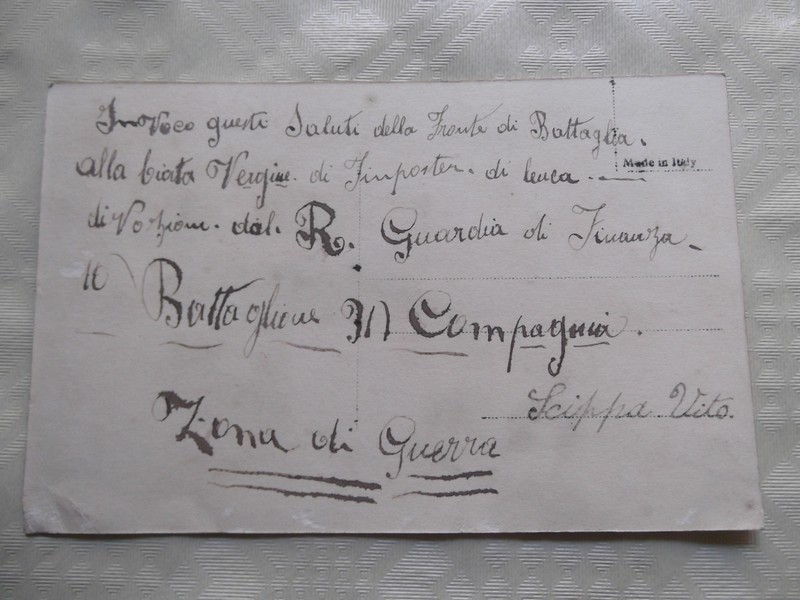 Invoco questi Saluti della Fronte di Battaglia.
Made in Italy
alla biata Vergine. di Finposter. di leuca.
divozioni. dal. R. Guardia di Finanza
10) Battaglione 31) Compagnia.
Scippa Vito.
Zona di Guerra